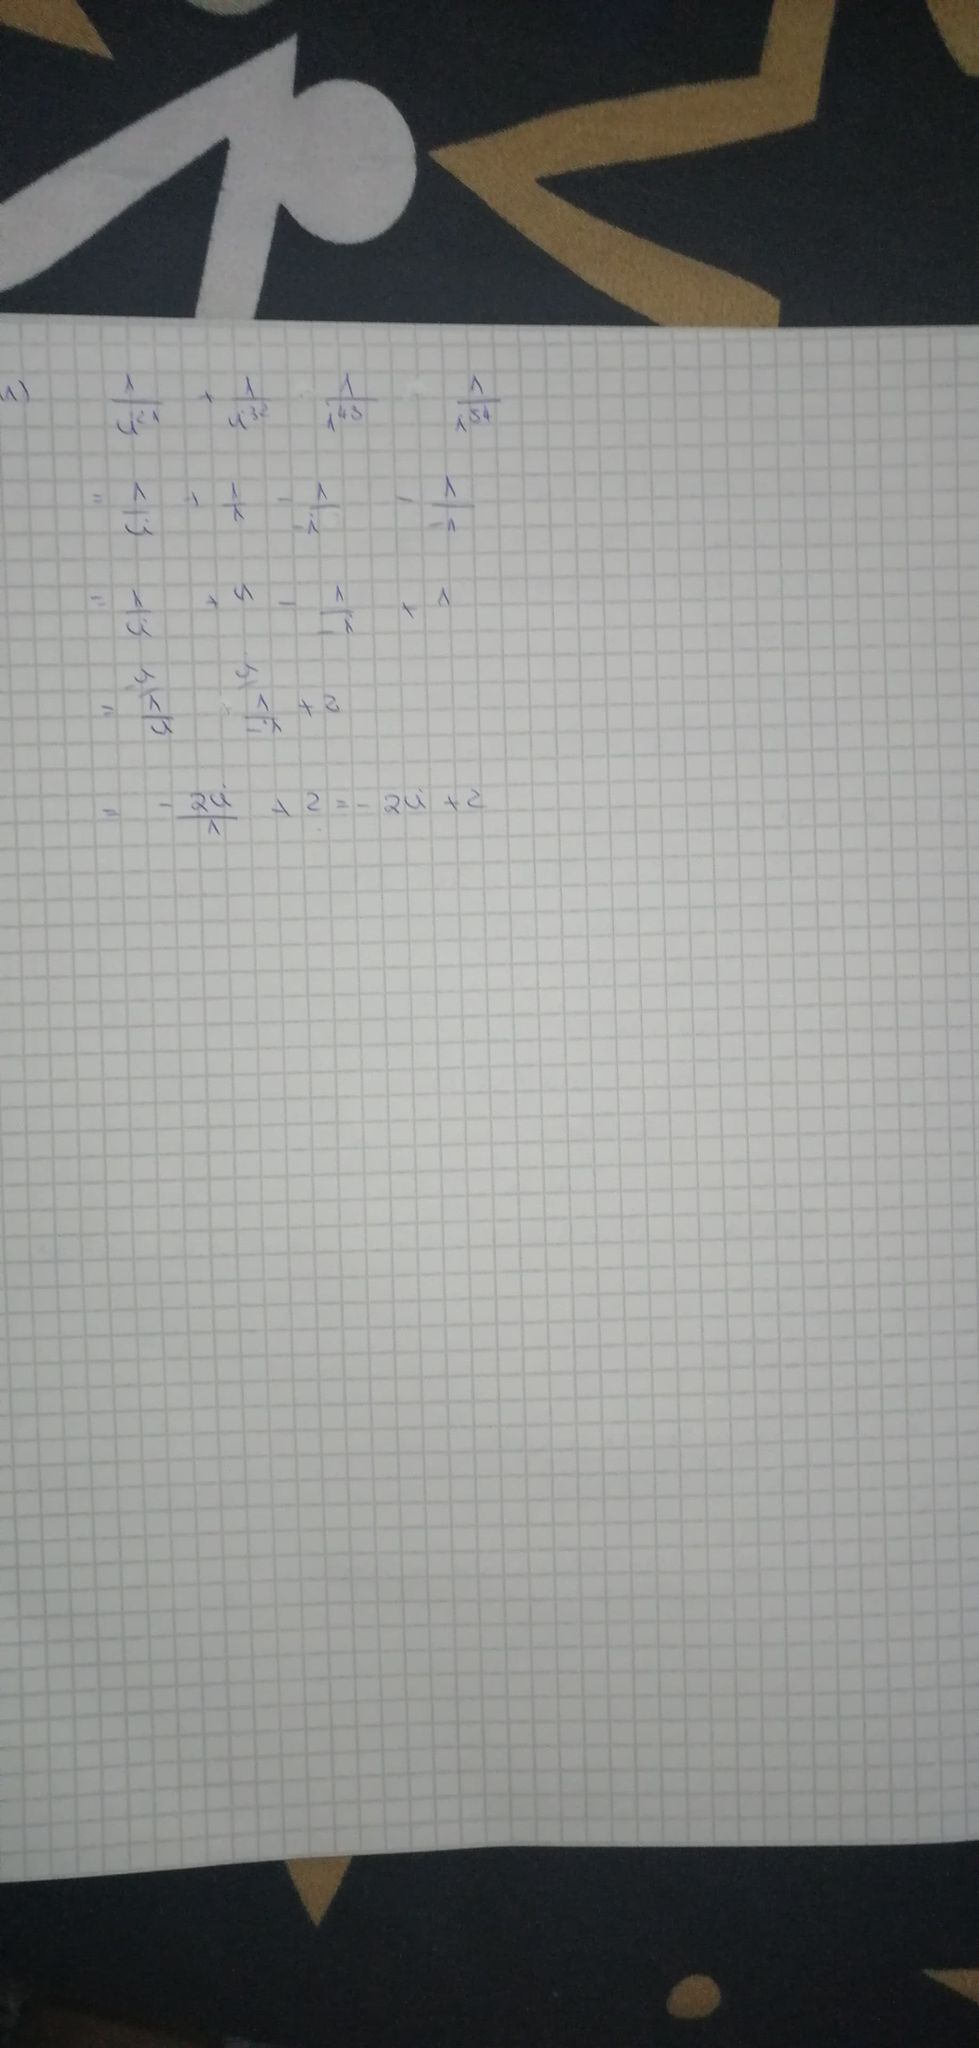 1) 1/i^21 + 1/i^32 - 1/i^43 - 1/i^54
= 1/i + 1/1 - 1/-i - 1/-1
= 1/i + 1 - 1/-i + 1
= 1/i - 1/-i + 2
= - 2i/1 + 2 = - 2i + 2